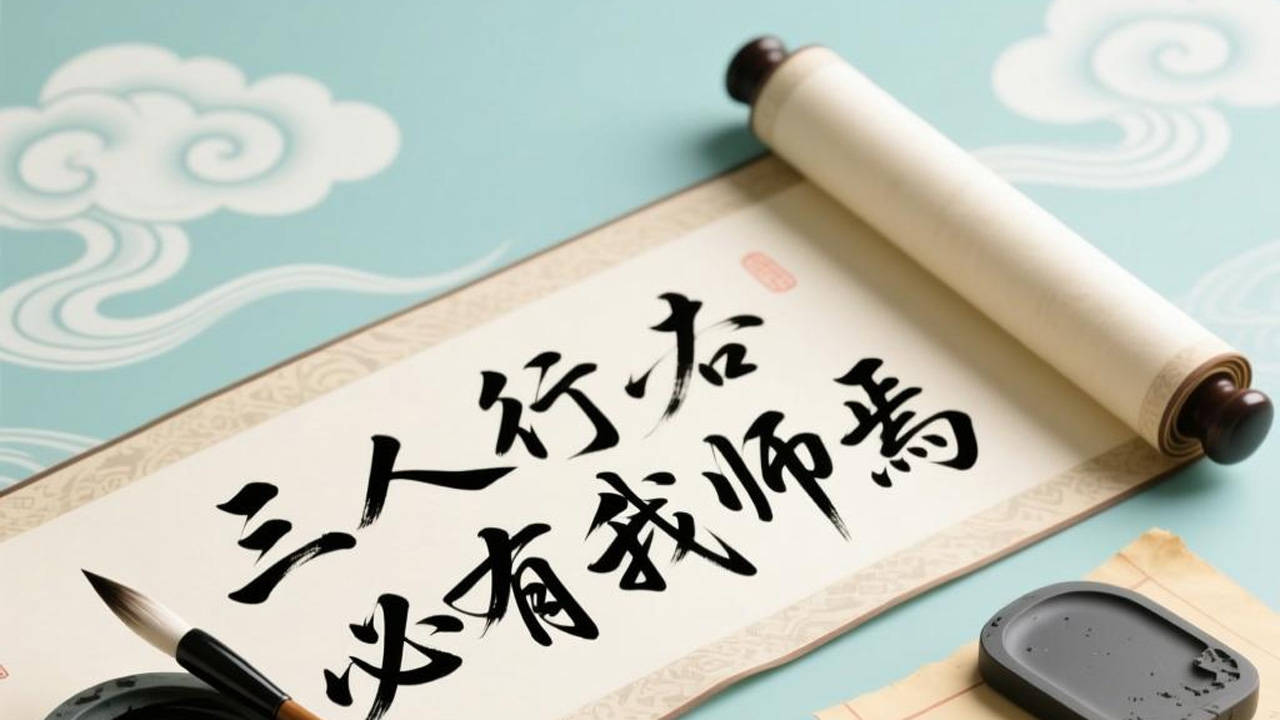 三人行
必有我师焉